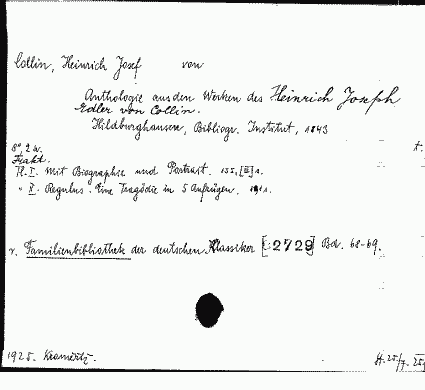 Collin, Heinrich Josef von
Anthologie aus den Werken des Heinrich Joseph
Edler von Collin.
Hildburghausen, Bibliogr. Institut, 1843
8°, 2 w.
t.
Frakt.
Tl. I. Mit Biographie und Portrait. 135, [III] S.
" II. Regulus. Eine Tragödie in 5 Aufzügen. S.
v. Familienbibliothek der deutschen Klassiker [:2729] Bd. 68-69.
1925. Kramertz.
H. 25/7. 25